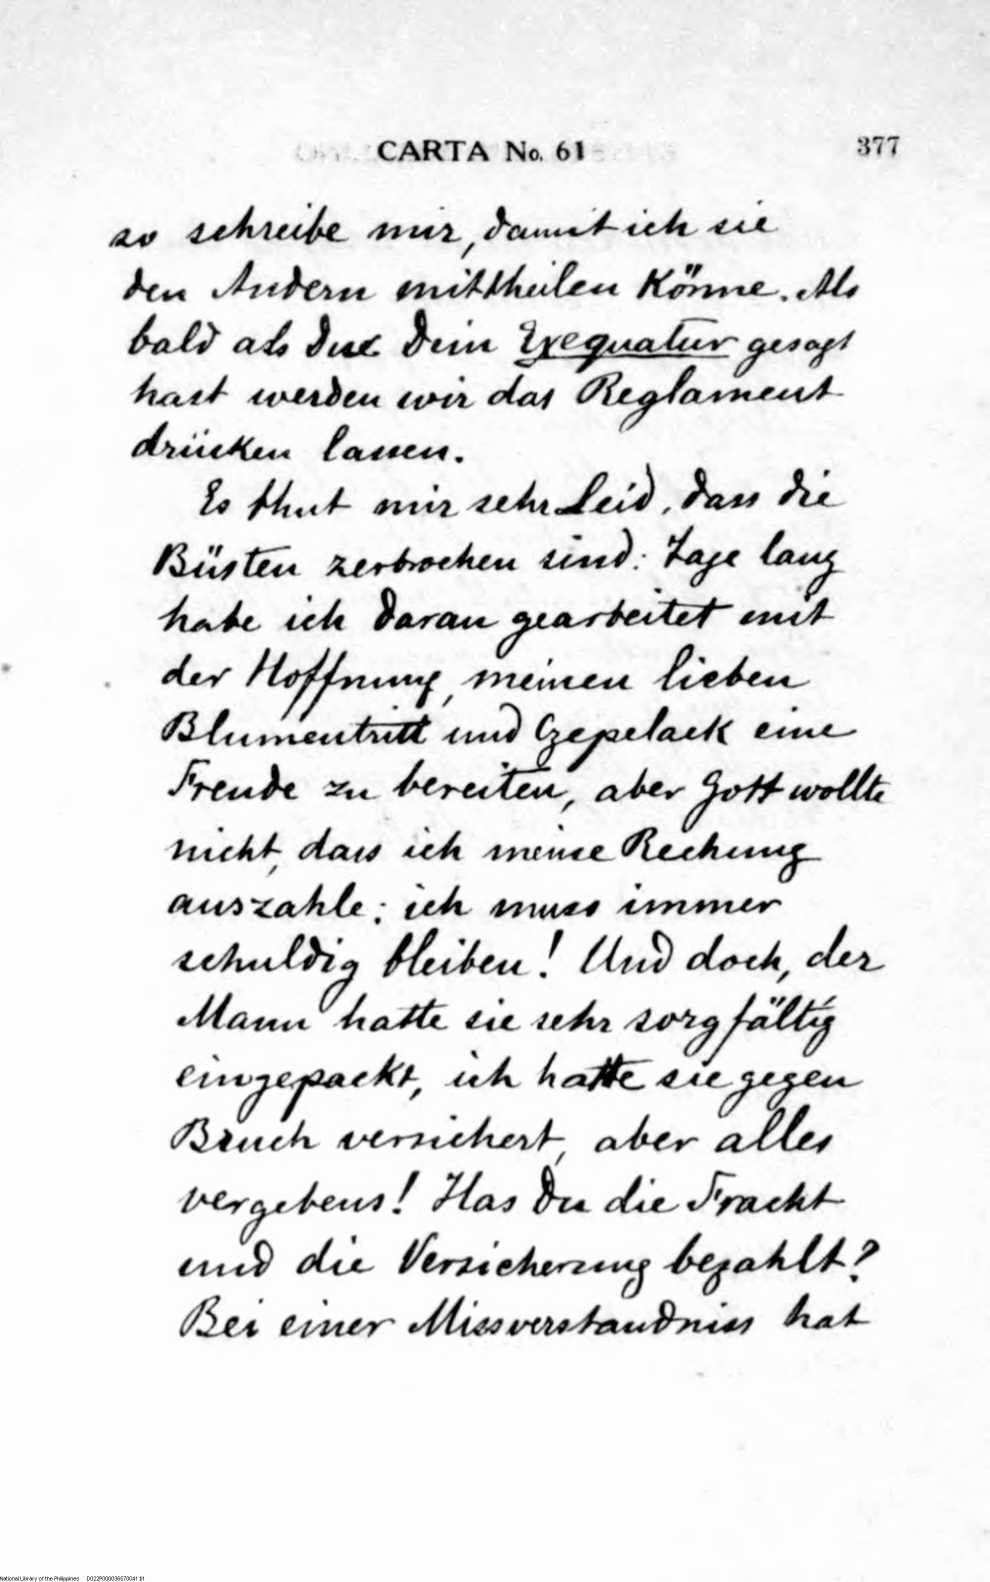 CARTA No. 61
377
so schreibe mir, damit ich sie
den Andern mittheilen Könne. Als
bald als Du Dein Exequatur gesagt
hast werden wir das Reglament
drücken lassen.
Es thut mir sehr Leid, dass die
Büsten zerbrochen sind: Tage lang
habe ich daran gearbeitet mit
der Hoffnung, meinen lieben
Blumentritt und Czepelack eine
Freude zu bereiten, aber Gott wollte
nicht, dass ich meine Rechung
auszahle; ich muss immer
schuldig bleiben! Und doch, der
Mann hatte sie sehr sorgfältig
eingepackt, ich hatte sie gegen
Bruch versichert, aber alles
vergebens! Has Du die Fracht
und die Versicherung bezahlt?
Bei einer Missverstandniss hat
National Library of the Philippines